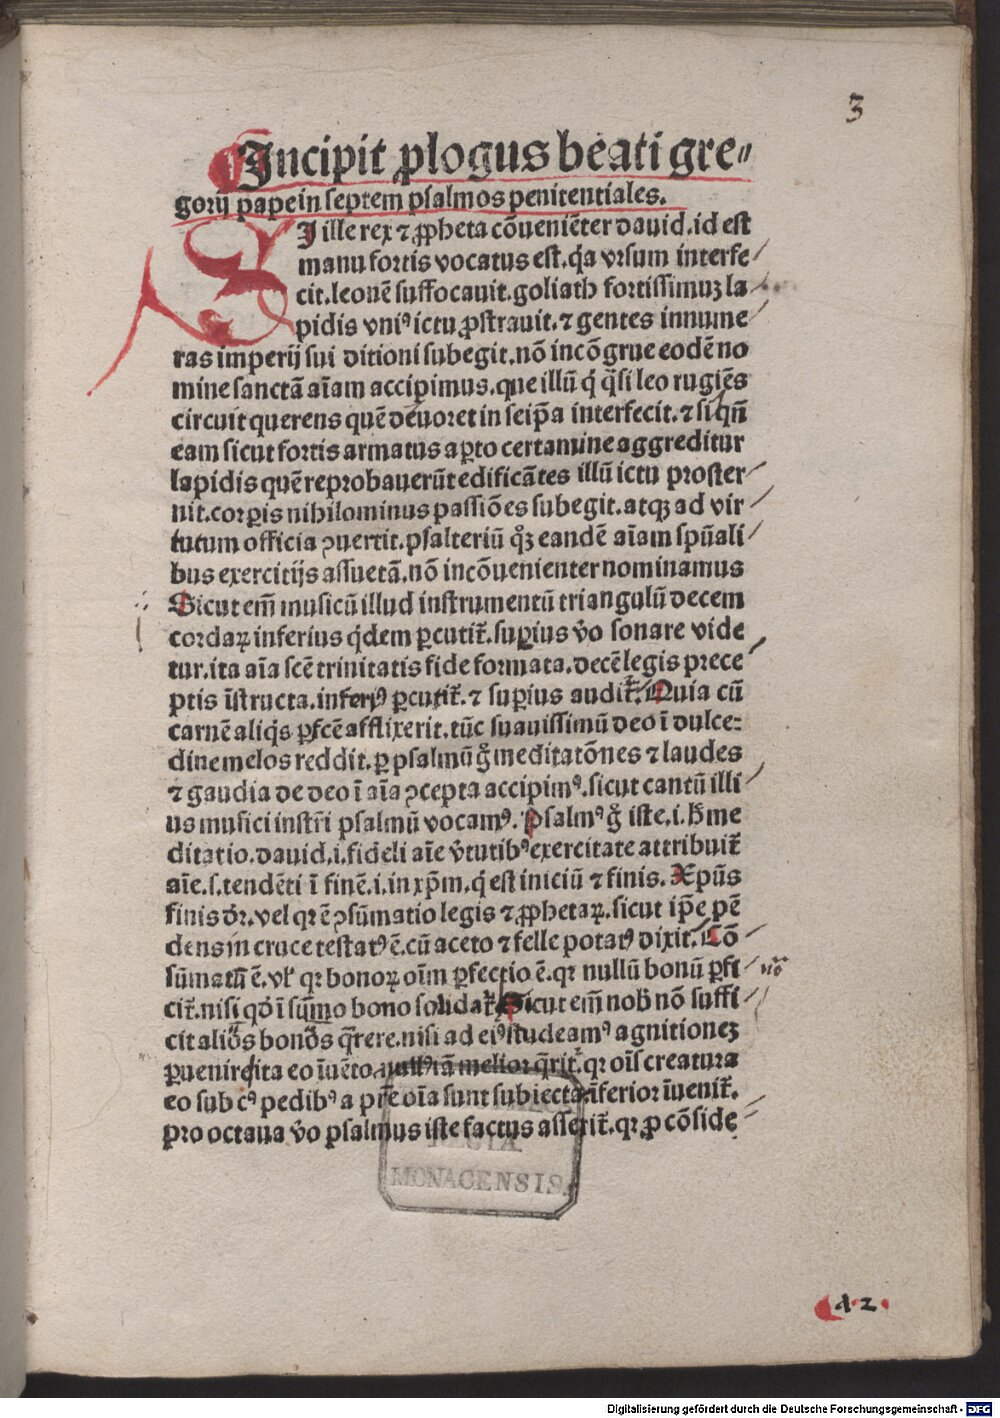 3
Incipit ꝓlogus beati gre⸗
gorij pape in septem psalmos penitentiales.
SI ille rex ⁊ ꝓpheta cōueniēter dauid. id est
manu fortis vocatus est. q̇a vrsum interfe
cit. leonē suffocauit. goliath fortissimuꝫ la
pidis vniꝰ ictu ꝓstrauit. ⁊ gentes innume
ras imperij sui ditioni subegit. nō incōgrue eodē no
mine sanctā aīam accipimus. que illū q̇ q̄si leo rugiēs
circuit querens quē deuoret in seip̄a interfecit. ⁊ si qn̄
eam sicut fortis armatus aꝑto certamine aggreditur
lapidis quē reprobauerūt edificātes illū ictu proster
nit. corꝑis nihilominus passiōes subegit. atqꝫ ad vir
tutum officia ꝯuertit. psalteriū qͦꝫ eandē aīam spūali
bus exercitijs assuetā. nō incōuenienter nominamus
Sicut em̄ musicū illud instrumentū triangulū decem
cordaꝝ inferius q̇dem ꝑcutit᷑. suꝑius v̇o sonare vide
tur. ita aīa scē trinitatis fide formata. decē legis prece
ptis īstructa. inferiꝰ ꝑcutit᷑. ⁊ suꝑius audit᷑. Quia cū
carnē aliq̇s ꝑfcē afflixerit. tūc suauissimū deo ī dulce⸗
dine melos reddit. ꝑ psalmū g̊ meditatōnes ⁊ laudes
⁊ gaudia de deo ī aīa ꝯcepta accipimꝰ. sicut cantū illi
us musici instr̄i psalmū vocamꝰ. Psalmꝰ g̊ iste .i. h̄ me
ditatio. dauid .i. fideli aīe v̇tutibꝰ exercitate attribuit᷑
aīe .s. tendēti ī finē .i. in xp̄m. q̇ est iniciū ⁊ finis. Xp̄us
finis dr̄. vel qꝛ ē ꝯsūmatio legis ⁊ ꝓphetaꝝ. sicut ip̄e pē
dens in cruce testatꝰ ē. cū aceto ⁊ felle potatꝰ dixit. Cō
sūmatū ē. vl̓ qꝛ bonoꝝ oīm ꝑfectio ē. qꝛ nullū bonū ꝑfi
cit᷑. nisi qd̓ ī sūmo bono solidat᷑. Sicut em̄ nob̓ nō suffi
cit aliōs bonōs q̄rere. nisi ad eiꝰ studeamꝰ agnitioneꝫ
ꝑuenire. ita eo īuēto nullꝰ iā melior q̄rit᷑. qꝛ oīs creatura
eo sub cꝰ pedibꝰ a pr̄e oīa sunt subiecta īferior īuenit᷑.
pro octaua v̇o psalmus iste factus asserit᷑. qꝛ ꝓ cōside
MONACENSIS.
a 2
Digitalisierung gefördert durch die Deutsche Forschungsgemeinschaft - DFG